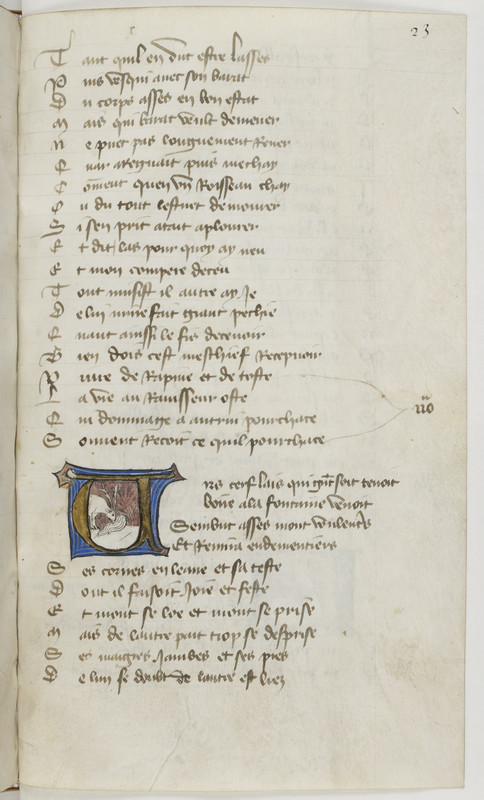 23
Tant quil en dut estre lasses
Puis vesqui avec son barat
Du corps asses en bon estat
Mais qui barat veult demener
Ne puet pas longuement regner
Car puis
Coment quen un roissean chay
Ou du tout lestuet demourer
Si sen prit atant a plourer
Et dit las pour quoy ay neu
Et mon compere deceu
Tout autre ay je
De lui grant pechie
Quant ainssi le fis decevoir
Bien dois cest meschief recevoir
Vivre de rapine et de toste
La vie au ravisseur oste
Cui dommage a autrui pourchace
Souvent recoit ce quil pourchace
no
Uns cerf lais qui soit tenoit
Boire a la fontaine venoit
Sembut asses mont
Et remira endementiers
Ses cornes en leaue et sa teste
Dont il faisoit joie et feste
Et mont se loe et mont se prise
Mais de lautre part trop se desprise
Ses maigres jambes et ses pies
De lun se de lautre est liez